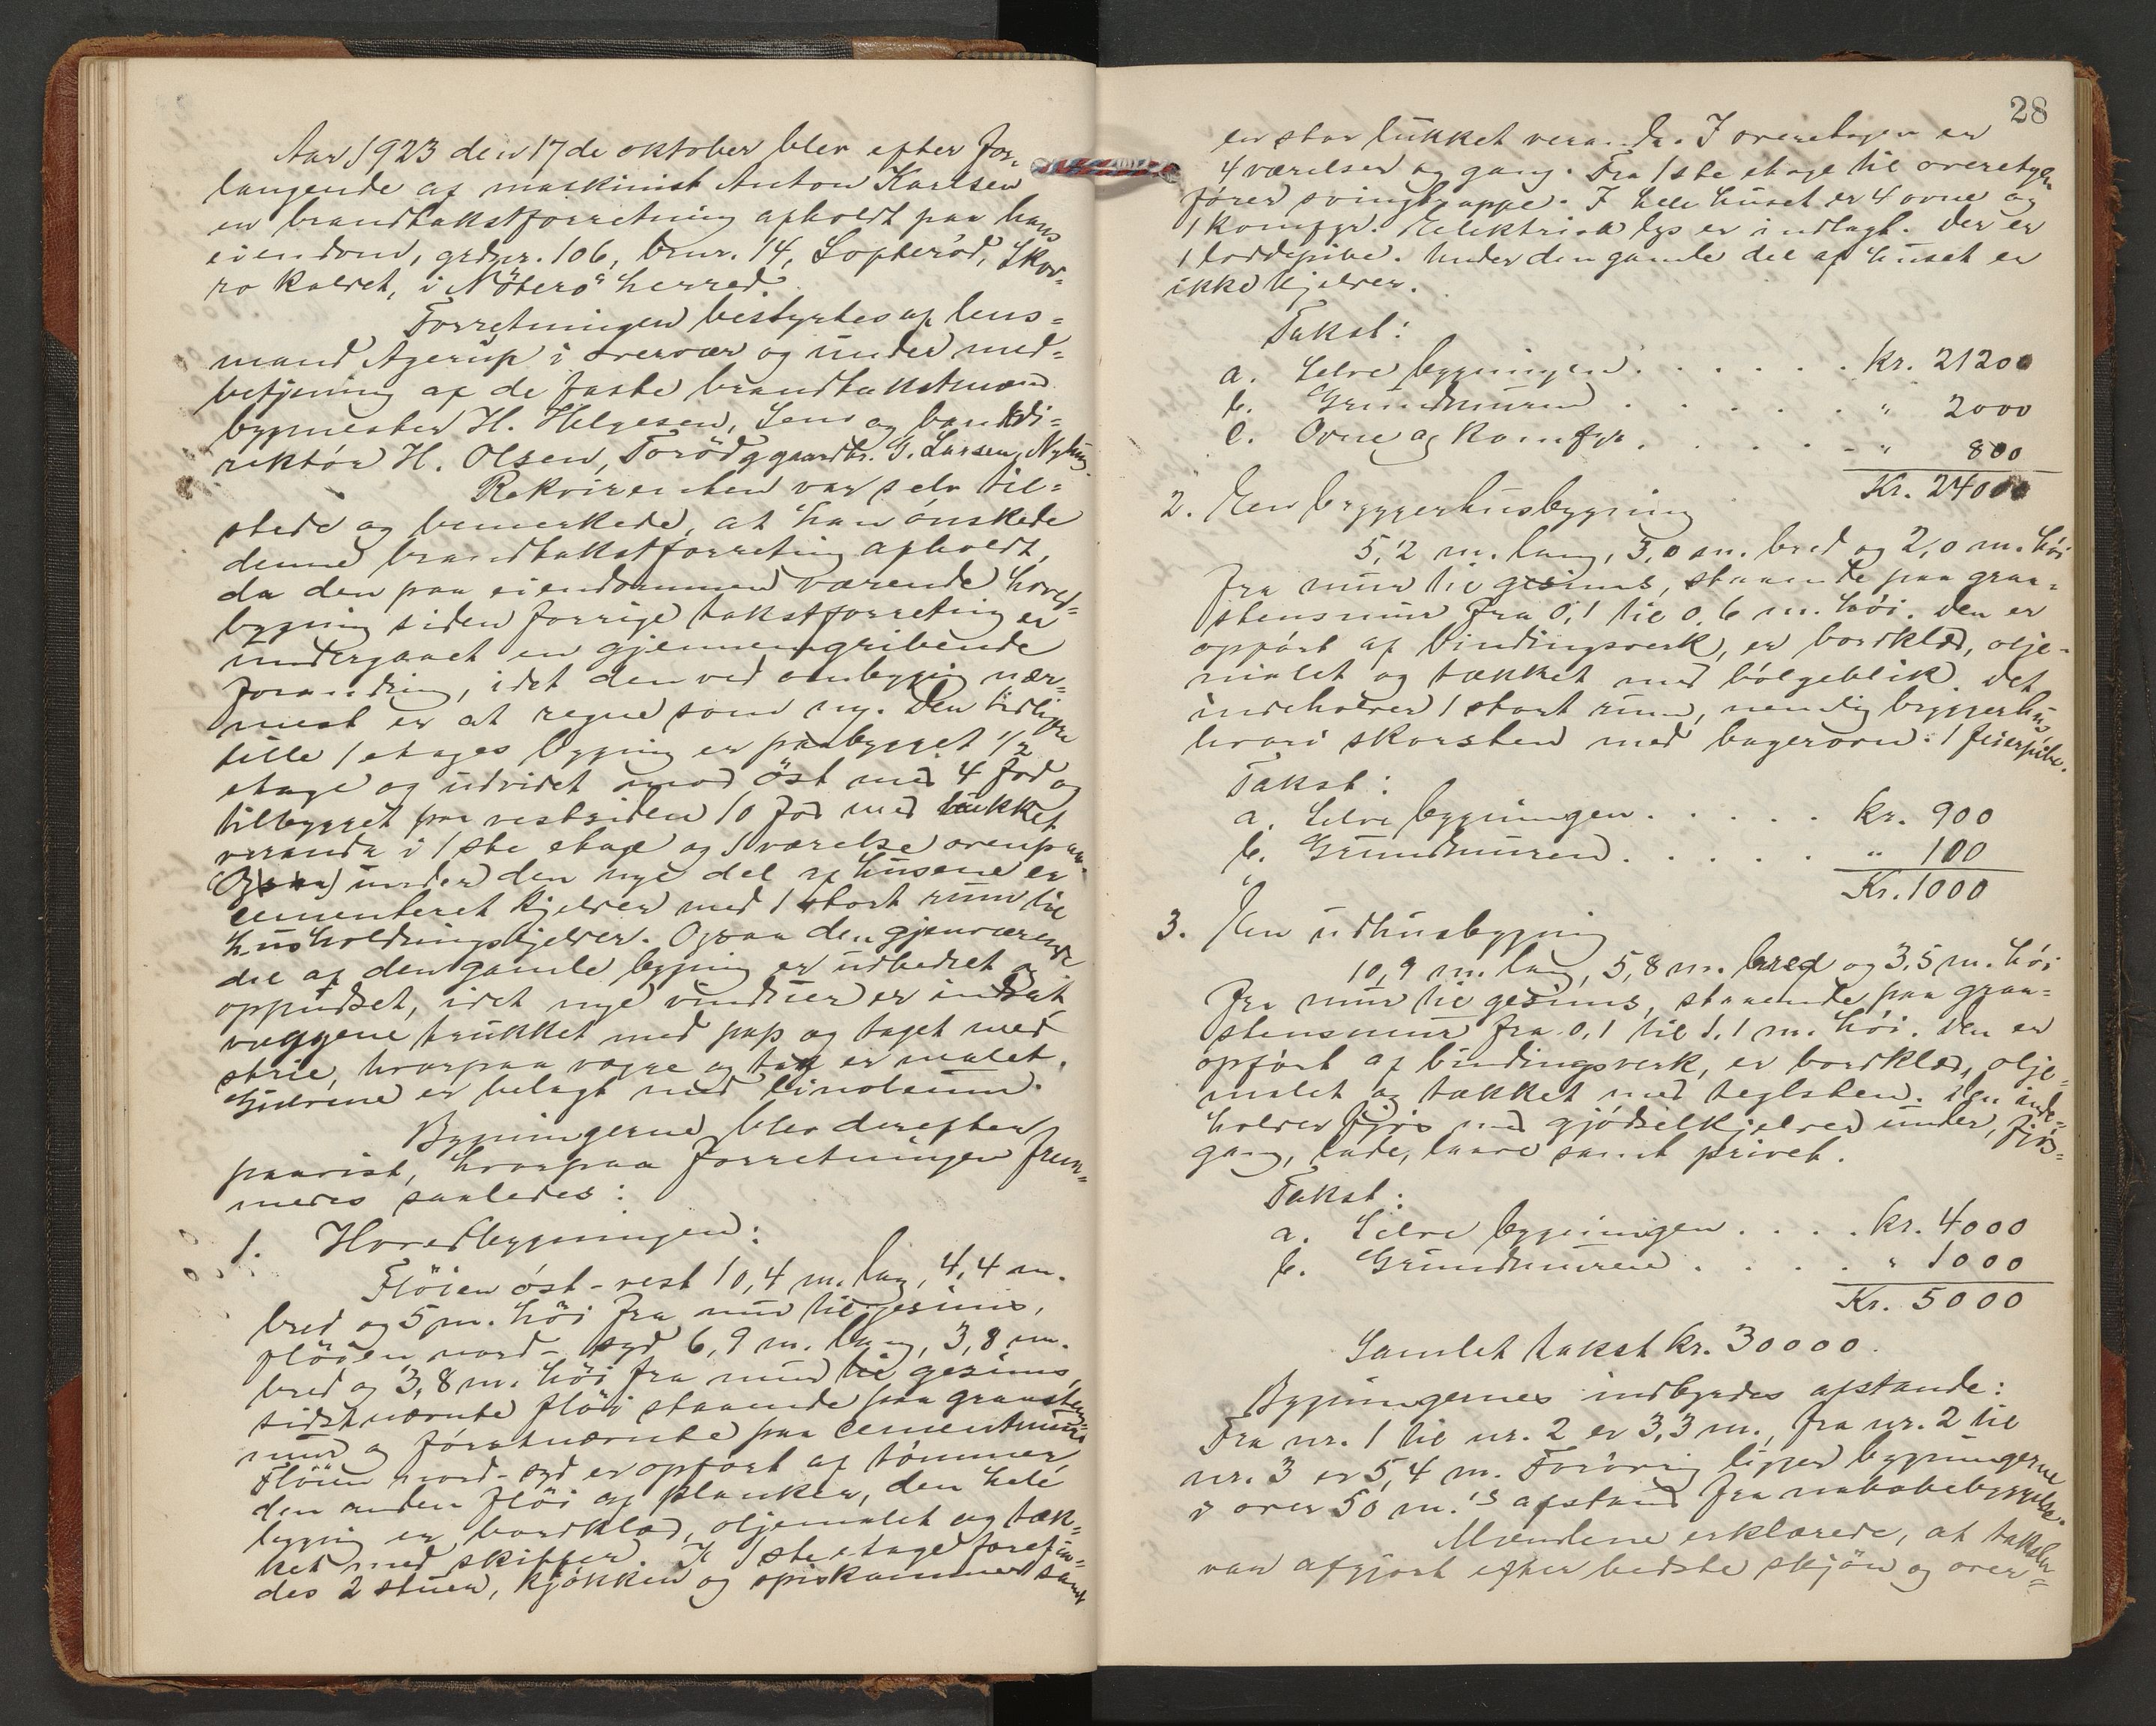 Aar 1923 den 17de oktober blev efter for-
langende af maskinist Anton Karlsen
en brandtakstforretning afholdt paa hans
eiendom, grdnr. 106, brnr. 14, Lofterød, Skor-
ro kaldet, i Nøterø herred.
Forretningen bestyrtes af lens=
mand Agerup i overvær og under med=
betjening af de faste brandtakstmænd
bygmester H. Helgesen, Sem og bankdi=
rektør H. Olsen, Torød, gaardbr. G. Larsen,
Rekvirenten var selv til=
stede og bemerkede, at han ønskede
denne brandtakstforretning afholdt,
da den paa eiendommen værende hoved=
bygning siden forrige takstforretning er
undergaaet en gjennemgribende
forandring, idet den ved ombygging nær=
mest er at regne som ny. Den tidligere
lille 1 etages bygning er paabygget 1/2
etage og utvidet mod øst med 4 fod og
tilbygget paa vestsiden 10 fod med lukket
veranda i 1ste etage og 1 værelse ovenpaa.
(Ogsaa) under den nye del af husene er
cementeret kjelder med 1 stort rum til
husholdningskjelder. Ogsaa den gjenværende
del af den gamle bygning er udbedret og
oppudset, idet nye vinduer er indsat
væggene trukket med pap og taget med
strie, hvorpaa vægge og tag er malet.
Gulvene er belagt med linoleum.
Bygningerne blev derefter
paavist, hvorpaa forretningen frem=
medes saaledes:
1. Hovedbygningen:
Fløien øst-vest 10,4 m. lang, 4,4 m.
bred og 5 m. høi fra mur til gesims,
fløien nord-syd 6,9 m. lang, 3,8 m.
bred og 3,8 m. høi fra mur til gesims,
sidstnævnte fløi staaende paa graastens
mur og førstnævnte paa cementmur
Fløien nord-syd er opført af tømmer,
den anden fløi af planker, den hele
bygning er bordklæd, oljemalet og tæk=
ket med skiffer. I 1ste etage forefin=
des 2 stuer, kjøkken og spiskammer samt
28
en stor lukket veranda. I overetagen er
4 værelser og gang. Fra 1ste etage til overetagen
fører svingtrappe. I hele huset er 4 ovne og
1 komfyr. Elektrisk lys er indlagt. Der er
1 loddepibe. Under den gamle del af huset er
ikke kjelder.
Takst:
a. Selve bygningen . . . . . . kr. 21200
b. Grundmuren . . . . . " 2000
c. Ovne og komfyr . . . . . " 800
Kr. 24000
2. En bryggerhusbygning
5,2 m. lang, 3,0 m. bred og 2,0 m. høi
fra mur til gesims, staaende paa graa=
stensmur fra 0,1 til 0,6 m. høi. Den er
opført af bindingsverk, er bordklæd, olje-
malet og tækket med bølgeblik. Det
indeholder 1 stort rum, nemlig bryggerhus,
hvori skorsten med bagerovn. 1 feierpibe.
Takst:
a. Selve bygningen . . . . . kr. 900
b. Grundmuren . . . . . " 100
Kr. 1000
3. En udhusbygning
10,9 m. lang, 5,8 m. bred og 3,5 m. høi
fra mur til gesims, staaende paa graa=
stensmur fra 0,1 til 1,1 m. høi. Den er
opført af bindingsverk, er bordklæd, olje-
malet og tækket med teglsten. Den inde=
holder fjøs med gjødselkjelder under, fjøs=
gang, lade, laave samt privet.
Takst:
a. Selve bygningen . . . . kr. 4000
b. Grundmuren . . . . " 1000
Kr. 5000
Samlet takst kr. 30000.
Bygningernes indbyrdes afstande:
Fra nr. 1 til nr. 2 er 3,3 m., fra nr. 2 til
nr. 3 er 5,4 m. Forøvrig ligger bygningerne
i over 50 m.'s afstand fra nabobebyggelse.
Mændene erklærede, at taksten
var afgjort efter bedste skjøn og over=